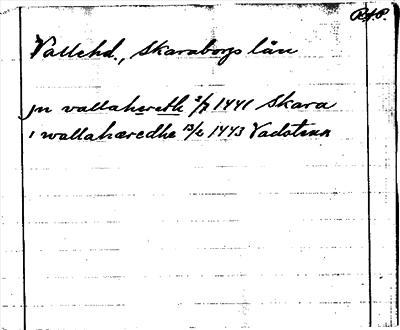 RAP.
Vallehd., Skaraborgs län
jn vallahereth 2/7 1441 Skara
i wallahæredhe 13/2 1443 Vadstena